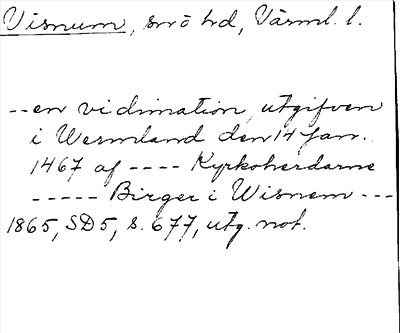 Visnum, snö hd, Värml. l.
--en vidimation, utgifven
i Wermland den 14 Jan.
1467 af ---- Kyrkoherdarne
----- Birger i Wisnem ---
1865, SD5, s. 677, utg. not.